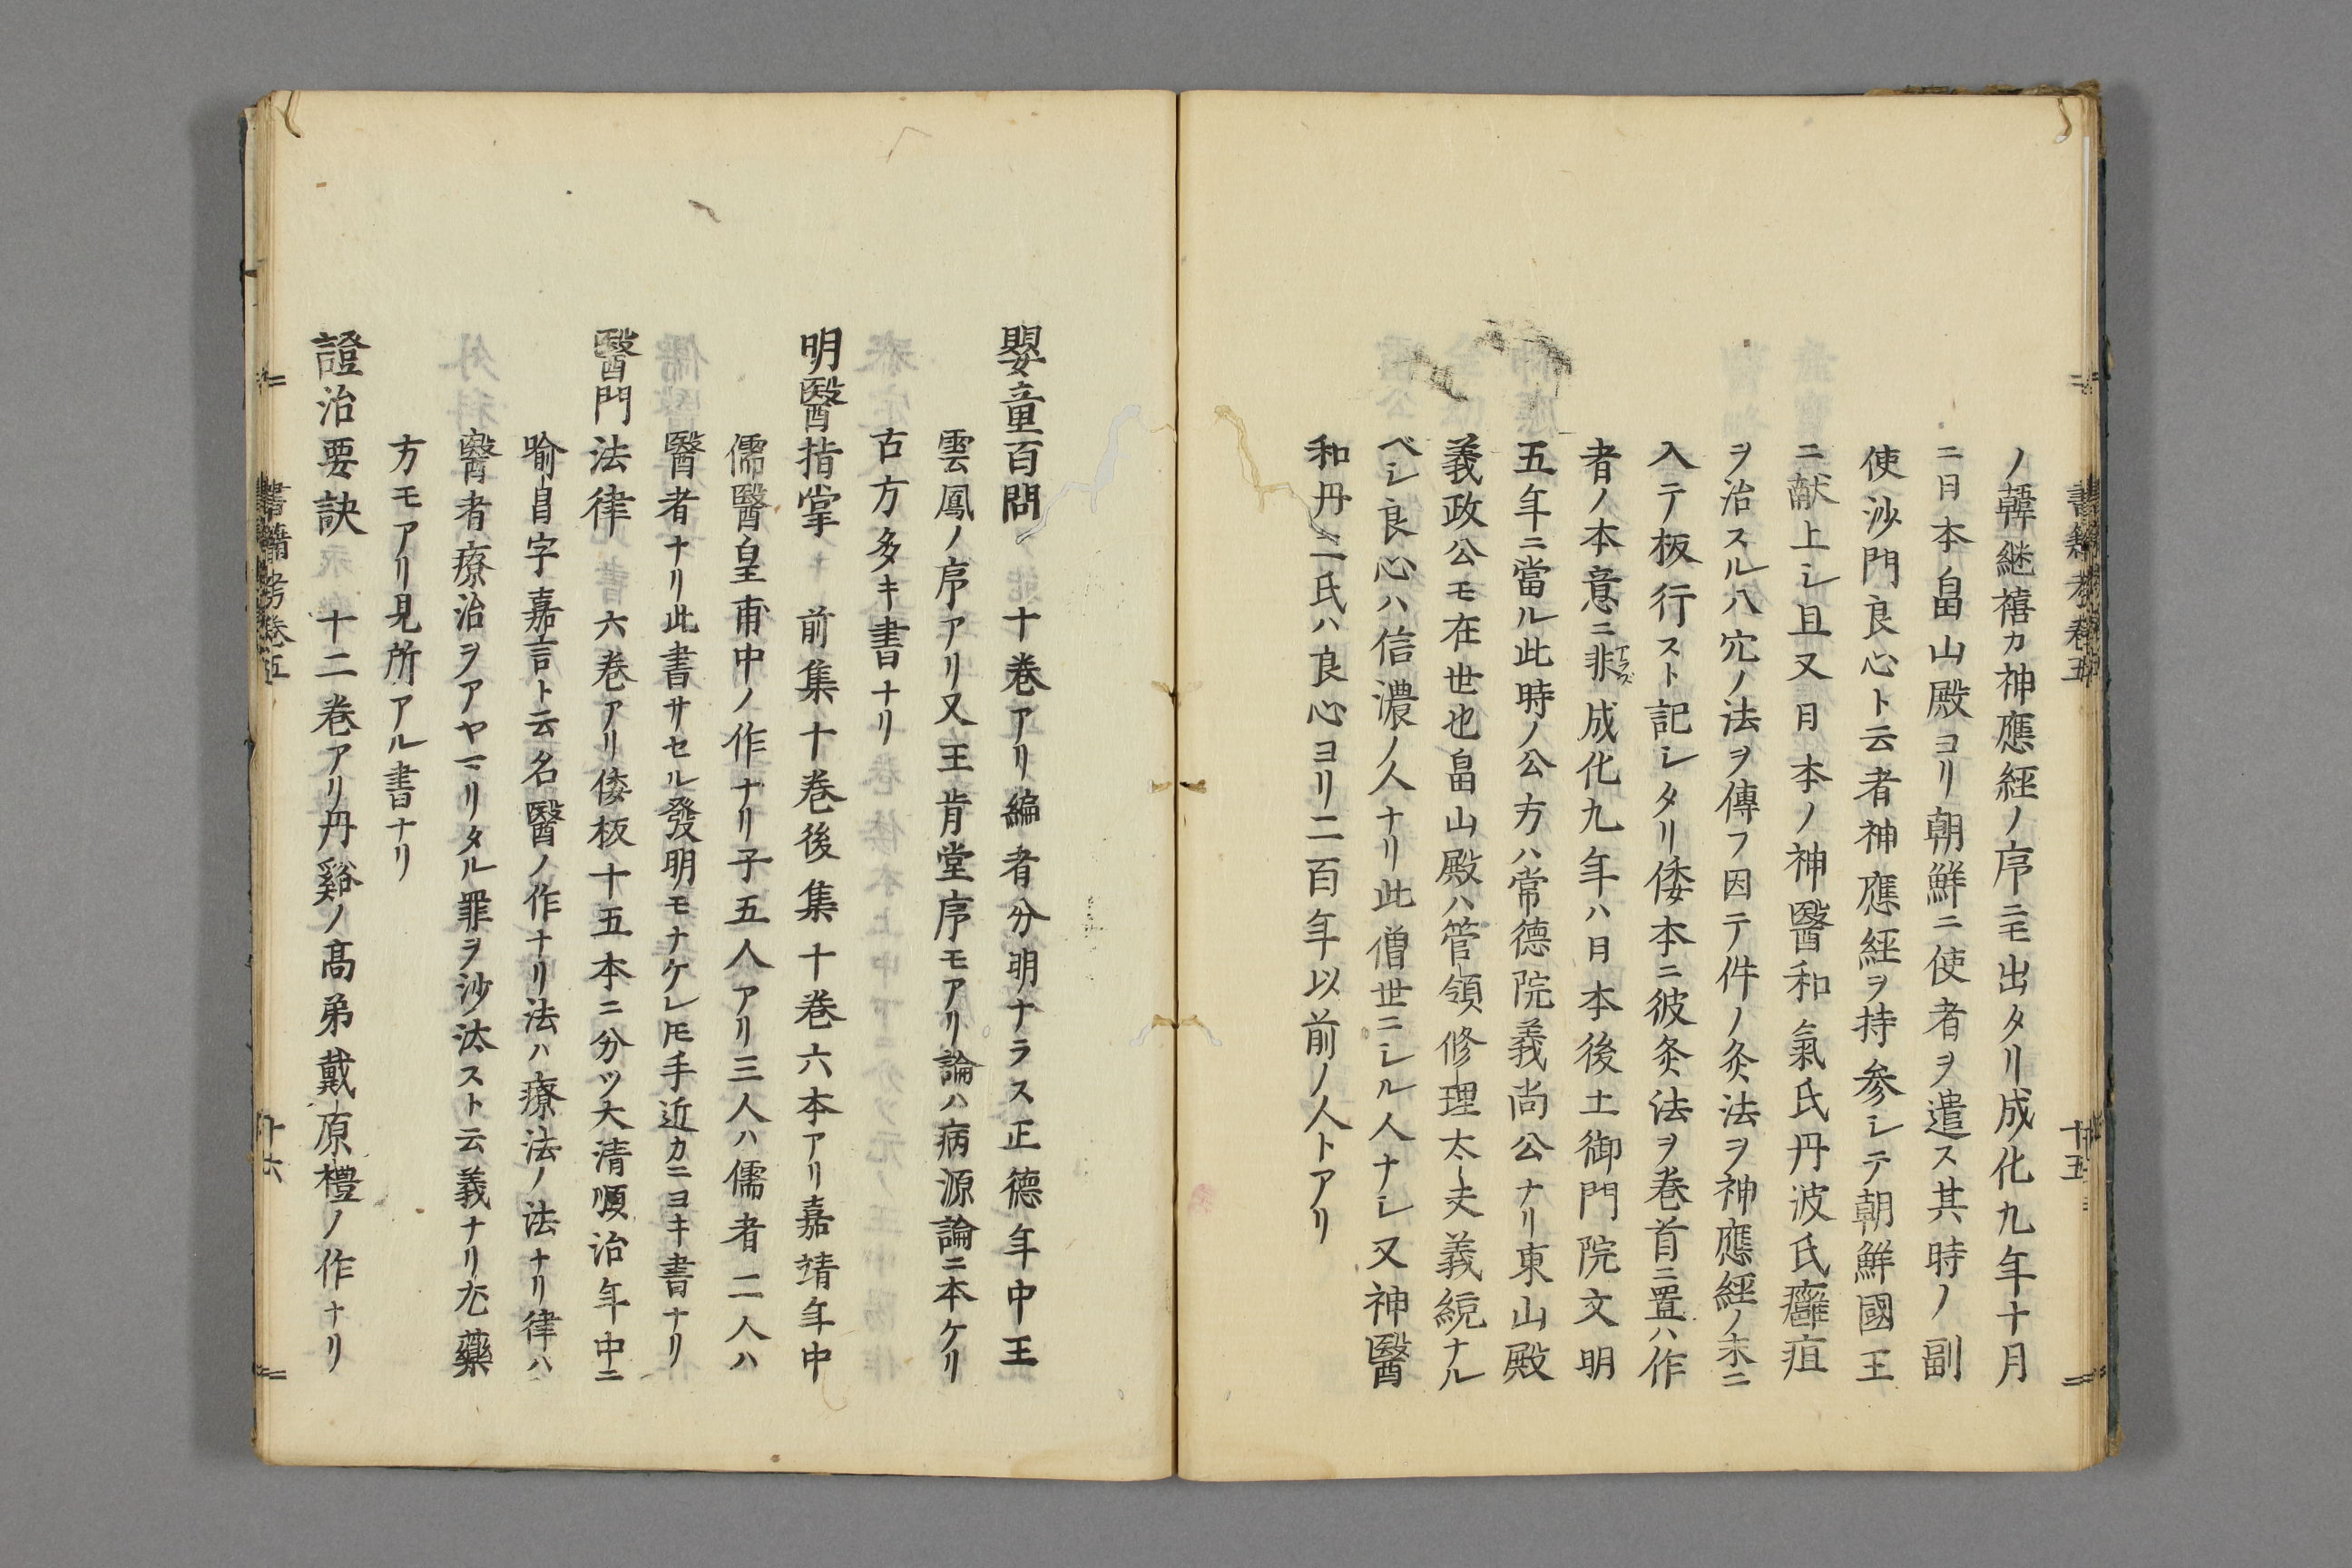 ノ韓継禧カ神應経ノ序ニモ出タリ成化九年十月
ニ日本畠山殿ヨリ朝鮮ニ使者ヲ遣ス其時ノ副
使沙門良心ト云者神應経ヲ持参シテ朝鮮國王
ニ献上シ且又日本ノ神醫和氣氏丹波氏癰疽
ヲ治スル八穴ノ法ヲ傳フ因テ件ノ灸法ヲ神應經ノ末ニ
入テ板行スト記シタリ倭本ニ彼灸法ヲ巻首ニ置ハ作
者ノ本意ニ非アラズ成化九年ハ日本後土御門院文明
五年ニ當ル此時ノ公方ハ常徳院義尚公ナリ東山殿
義政公モ在世也畠山殿ハ管領修理太夫義統ナル
ベシ良心ハ信濃ノ人ナリ此僧世ニシル人ナシ又神醫
和丹二氏ハ良心ヨリ二百年以前ノ人トアリ
嬰童百問 十巻アリ編者分明ナラス正德年中王
雲鳳ノ序アリ又王肯堂序モアリ論ハ病源論ニ本ケリ
古方多キ書ナリ
明醫指掌 前集十巻後集十巻六本アリ嘉靖年中
儒醫皇甫中ノ作ナリ子五人アリ三人ハ儒者二人ハ
醫者ナリ此書サセル發明モナケレ𪜈手近カニヨキ書ナリ
醫門法律 六巻アリ倭板十五本ニ分ツ大清順治年中ニ
喻昌字嘉言ト云名醫ノ作ナリ法ハ療法ノ法ナリ律ハ
醫者療治ヲアヤマリタル罪ヲ沙汰スト云義ナリ尤藥
方モアリ見所アル書ナリ
證治要訣 十二巻アリ丹谿ノ髙弟戴原禮ノ作ナリ
書籍考巻五
十六